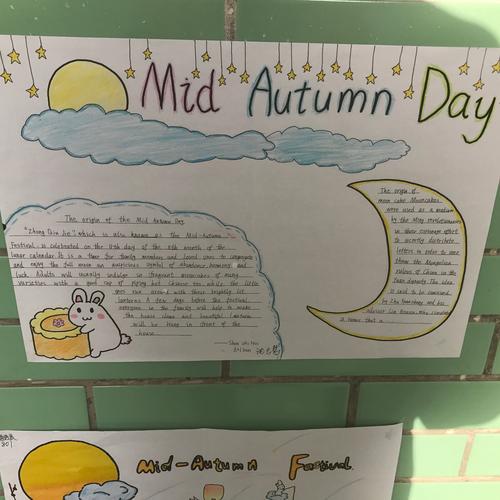 Mid Autumn Day
The origin of the Mid Autumn Day
"Zhong Qiu Jie", which is also known as the Mid-Autumn
Festival, is celebrated on the 15th day of the 8th month of the
lunar calendar. It is a time for family members and loved ones to congregate
and enjoy the full moon an auspicious symbol of abundance, harmony and
luck. Adults will usually indulge in fragrant mooncakes of many
varieties with a good cup of piping hot Chinese tea, while the little
ones run around with their brightly lit
lanterns A few days before the festival,
everyone in the family will help to make
the house clean and beautiful Lanterns
will be hung in front of the
house
The origin of
moon cake Mooncakes
were used as a medium
by the Ming revolutionaries
in their
effort
to secretly distribute
letters in order to over
throw the Mongolian
rulers of China in the
Yuan dynasty The idea
is said to be conceived
by Zhu Yuanzhang and his
advisor Liu
a rumor that a
Mid-Autumn Festival